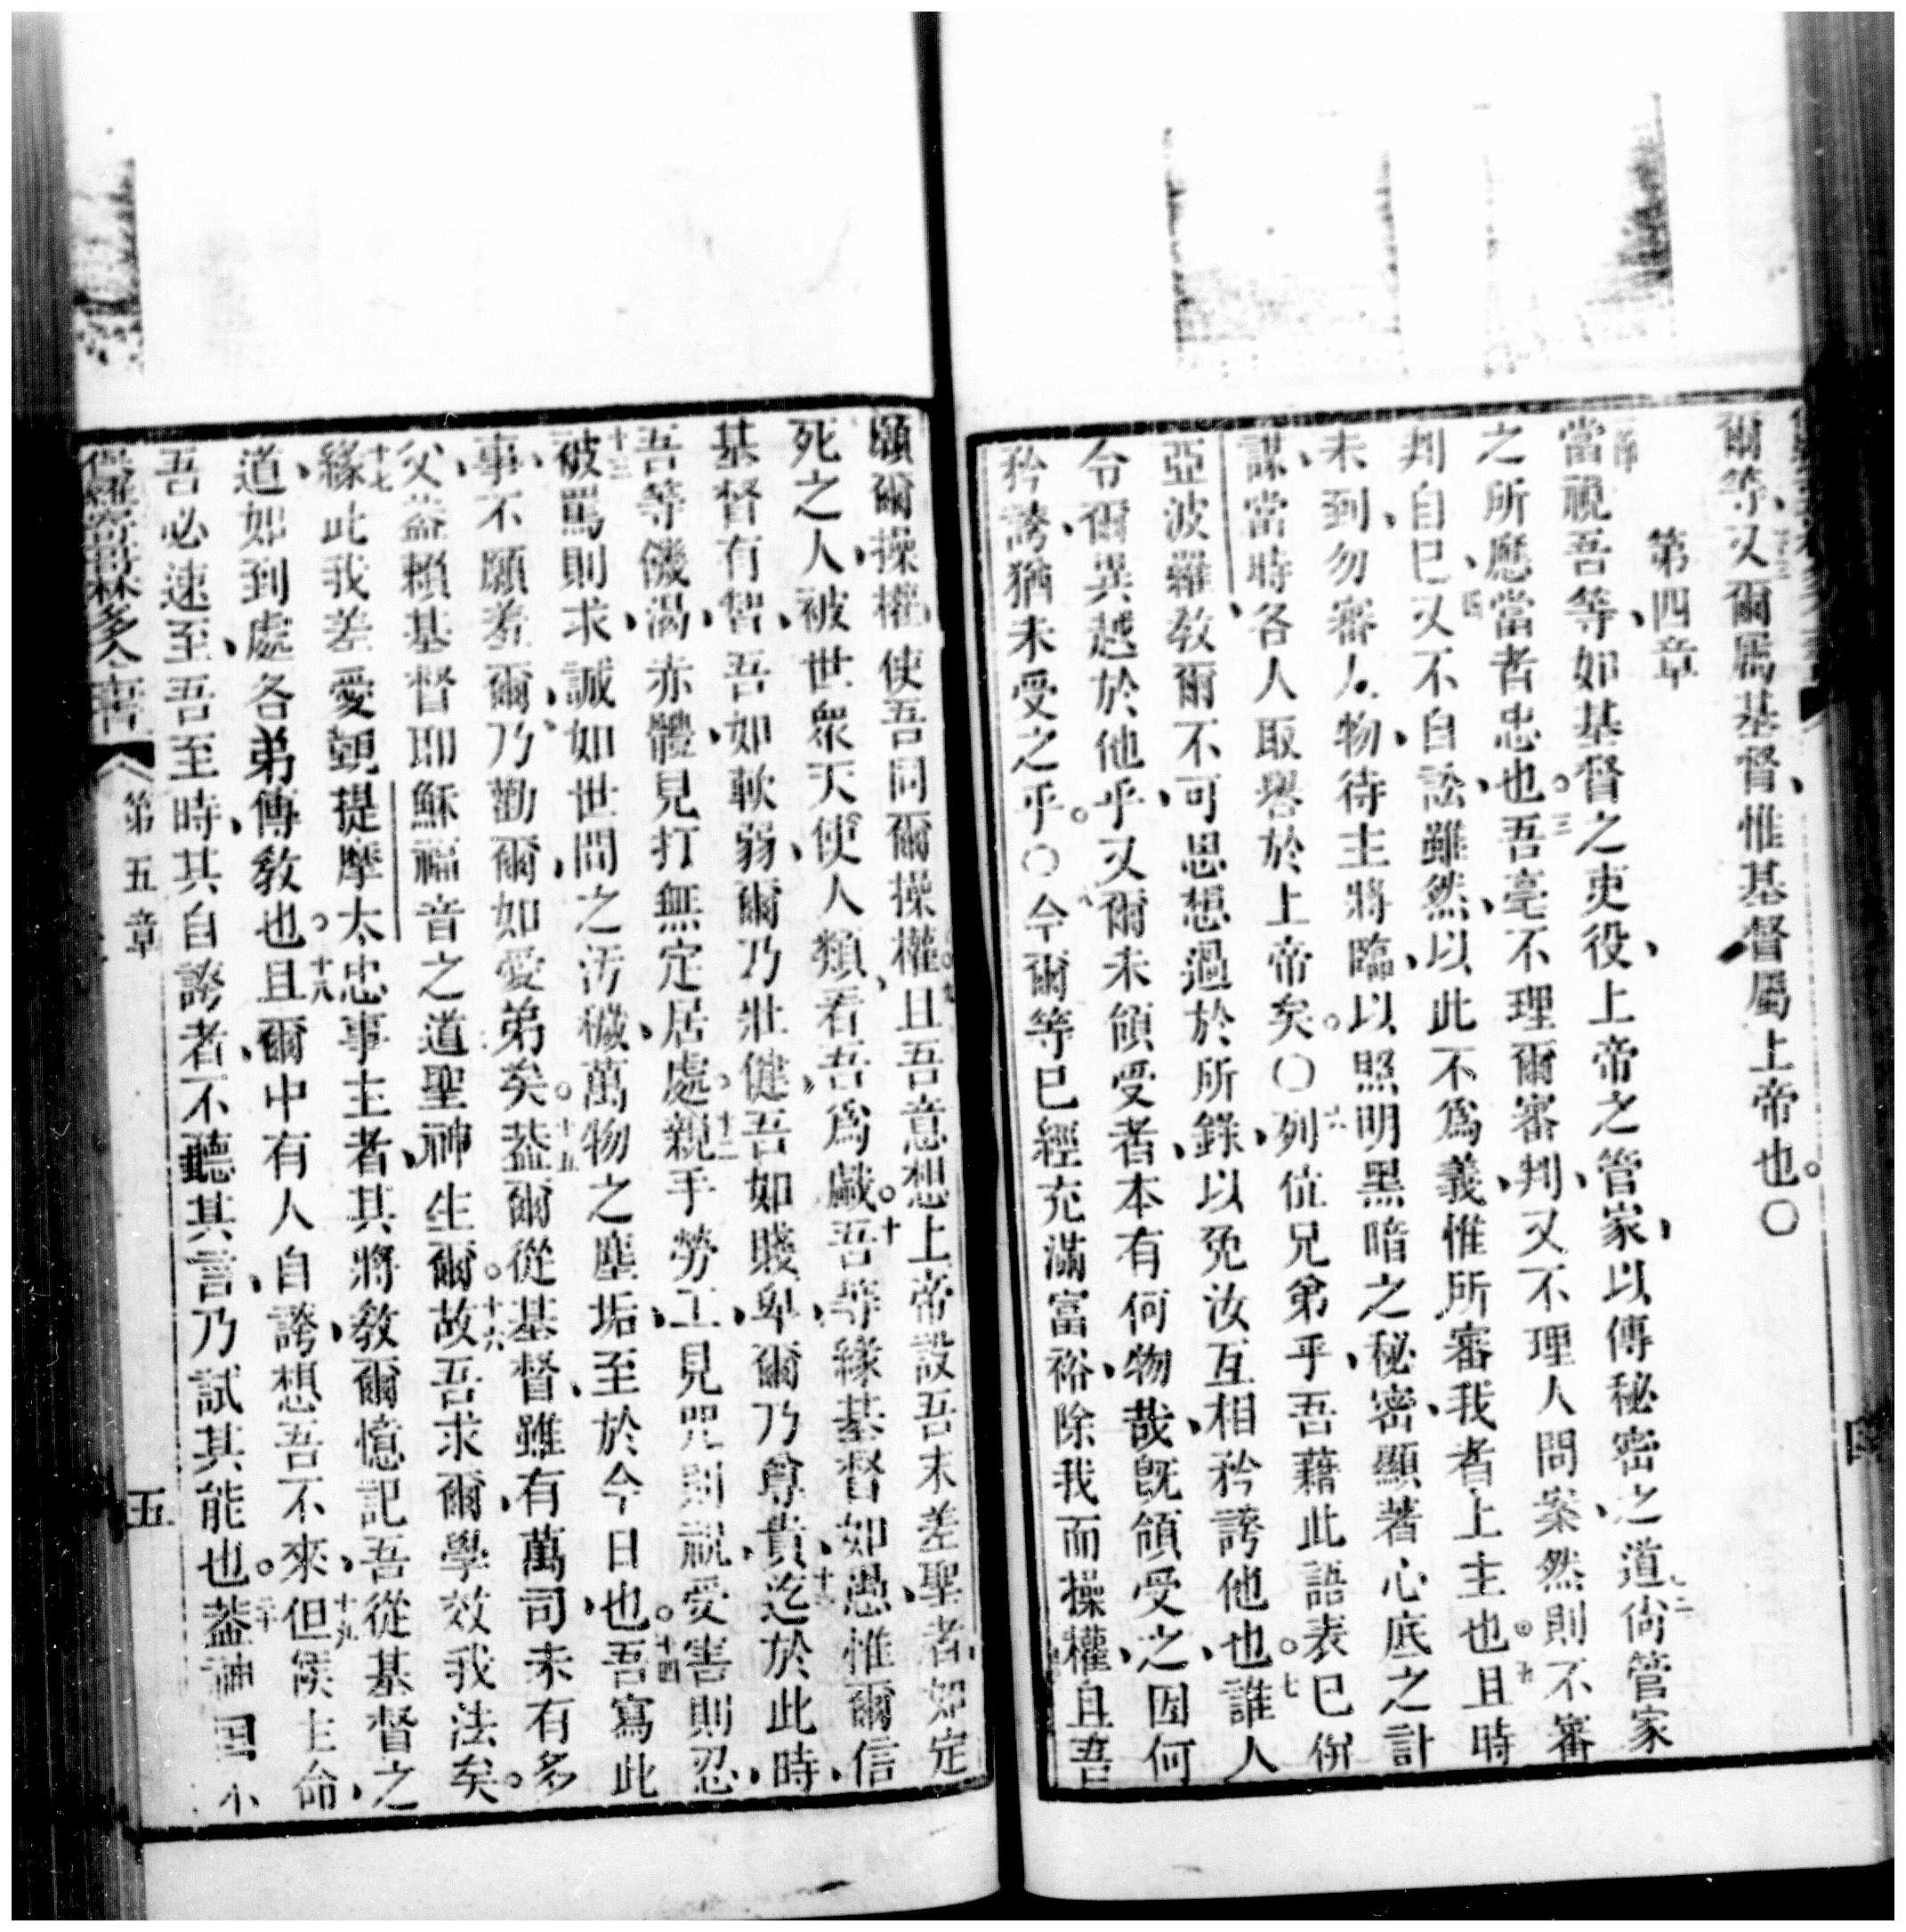 爾等、又爾屬基督、惟基督屬上帝也。〇
第四章
當視吾等、如基督之吏役、上帝之管家、以傳秘密之道尙管家
之所應當者忠也。三吾毫不理爾審判、又不理人問案、然則不審
判自己、四又不自訟、雖然、以此不爲義、惟所審我者上主也。五且時
未到、勿審人物、待主將臨、以照明黑暗之秘密、顯著心底之計
謀、當時各人取譽於上帝矣。〇六列位兄弟乎、吾藉此語表已倂
亞波羅、敎爾不可思想過於所錄、以免汝互相矜誇他也。七誰人
令爾異越於他乎、又爾未領受者、本有何物哉、旣領受之、因何
矜誇、猶未受之乎。〇八今爾等已經充滿富裕、除我而操權、且吾
願爾操權、使吾同爾操權。九且吾意想上帝設吾末差聖者、如定
死之人、被世衆天使人類、看吾爲戲。十吾等緣基督如愚、惟爾信
基督有智、吾如軟弱、爾乃壯健、吾如賤卑、爾乃尊貴、十一迄於此時、
吾等饑渴、赤體、見打無定居處。十二親手勞工、見咒則祝、受害則忍、
十三被罵則求、誠如世間之汚穢、萬物之塵垢、至於今日也。十四吾寫此
事、不願羞爾、乃勸爾、如愛弟矣。十五葢爾從基督、雖有萬司、未有多
父、葢賴基督耶穌福音之道、聖神生爾。十六故吾求爾、學效我法矣。
十七緣此我差愛親提摩太、忠事主者、其將敎爾憶記吾從基督之
道、如到處各弟傳敎也。十八且爾中有人自誇、想吾不來、十九但候主命、
吾必速至、吾至時、其自誇者、不聽其言、乃試其能也。二十葢神國不
保羅寄哥林多人上書
第五章
五
四